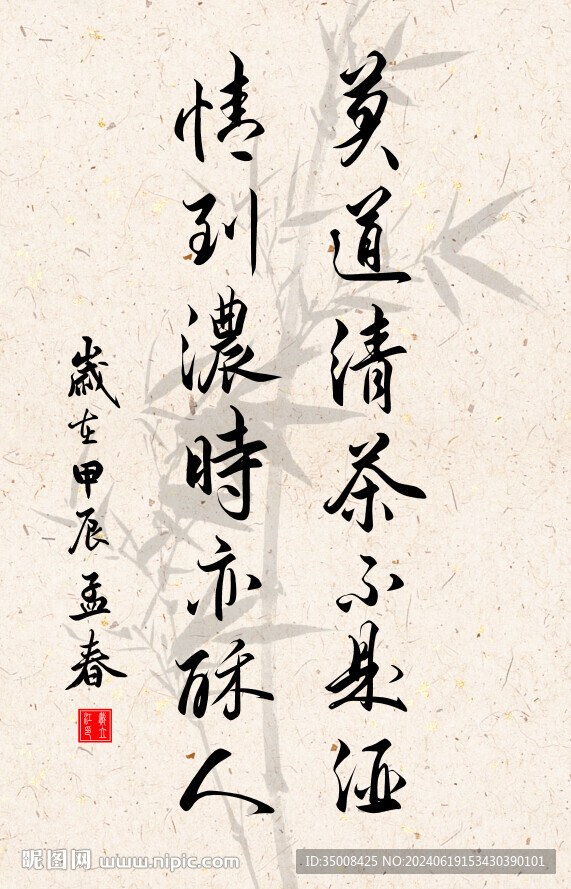 莫道清茶不是酒
情到濃時亦酥人
歲在甲辰孟春
昵图网 www.nipic.com
ID:35008425 NO:20240619153430390101